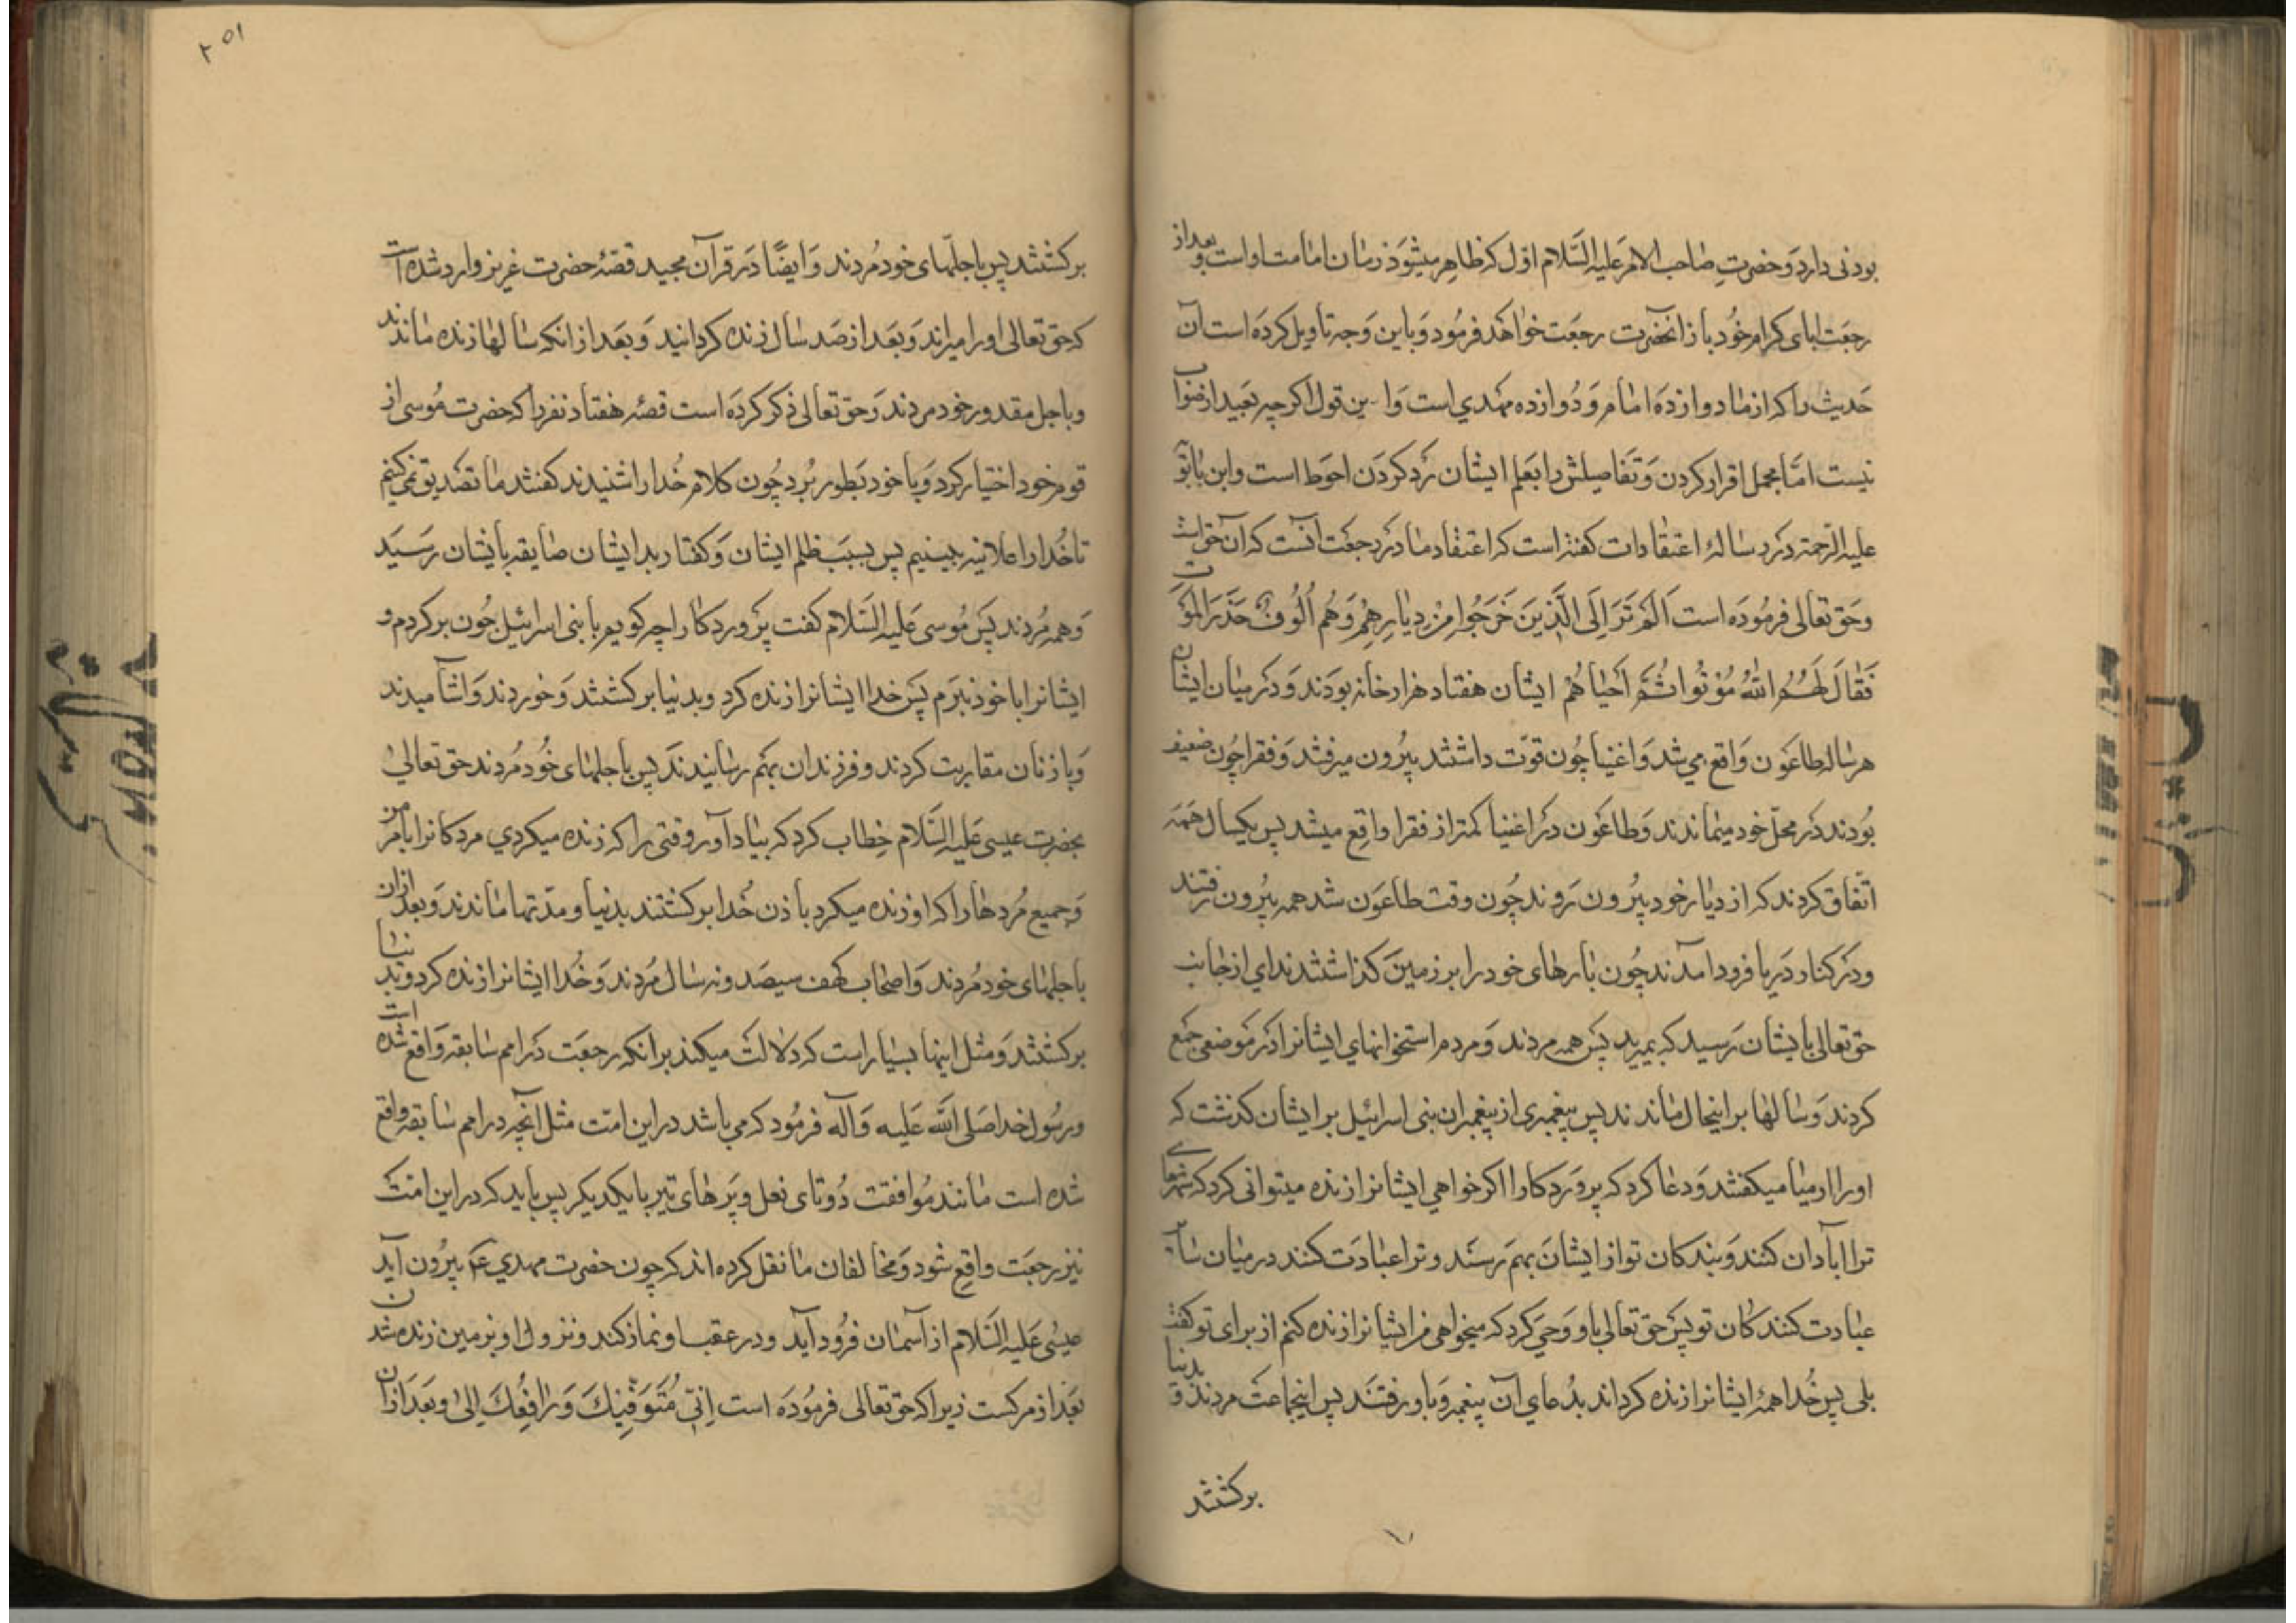 بودنی دارد وَحضرتِ صاحب الامر عَلیه السَّلام اوّل که ظاهر میشَود زمان امامت او است و بعد از
رجعَت ابای کرام خُود باز انحضرت رجعَت خواهَد فرمُود وَباین وَجه تاویل کردَه است آن
حَدیث را که از ما دوازدَه امام وَ دُوازده مهدي است وَاین قول اکرچه بَعید از صَواب
نیست امّا مجمل اقرار کردن وَتَفاصیلش را بعَلم ایشان رَد کردَن احوَط است وابن بابوَ
علیه الرّحمه دَر رسالهٔ اعتقادات کفته است که اعتقاد ما در رجعَت آنست که آن حق است
وَحَق تعَالی فرمُودَه است اَلَم تَرَ اِلَی الَّذِینَ خَرَجُوا مِنْ دِیارِهِمْ وَهُم اُلُوفٌ حَذَرَ المَوتِ
فَقالَ لَهُمُ اللهُ مُوْتُوا ثُمَّ اَحیاهُم ایشان هفتاد هزار خانه بودَند وَدَر میان ایشان
هرساله طاعَون وَاقع می شد وَاغنیا چُون قوّت داشتند بیرُون میرفتند وَفقرا چُون ضعیف
بوُدند دَر محلّ خود میماندند وَطاعَون دَر اغنیا کمتر از فقرا واقِع میشد پس یکسال همَه
اتّفاق کردند که از دیار خود بیرُون رَوند چُون وقت طاعَون شد همه بیرُون رفتند
ودَر کنار دَریا فرود آمدند چُون بارهای خود را بر زمینَ کذاشتند ندای از جانب
حق تعالی بایشان رَسید که بمیرید پَس همه مردند وَمردم استخوانهاي ایشانرا دَر مَوضعی جَمع
کردند وَسالها بر اینحال ماندند پس پیغمبری از پیغمبران بنی اسرائیل بر ایشان کذشت که
اورا ارمیا میکفتند وَدعا کرد که پروَردکارا اکر خواهی ایشانرا زنده میتوانی کرد که شهرهای
ترا آبادان کنند وَبندکان تو از ایشانَ بهم رسَند وترا عبادَت کنند در میان سایر
عبادت کنندکان تو پَس حق تعَالي باو وَحیَ کرد که میخواهی من ایشانرا زنده کنم از برای تو کفت
بلی پس خُدا همهٔ ایشانرا زنده کرداند بدُعاي آن پیغمبر وَباو رفتَند پس اینجماعَت مردند وَ بدنیا
برکشتند
٢٥١
برکشتند پس باجلهای خود مُردند وَایضًا دَر قرآن مجید قصّهٔ حضرت عزیز وارد شده است
که حق تعالی اورا میراند وَبعَد از صَد سال زنده کردانید وَبعَد از انکه سالها زنده ماندند
وباجل مقدور خود مردند وَحق تعالی ذکر کردَه است قصّه هفتاد نفر را که حضرت مُوسی از
قوم خود اختیار کرد وَبا خود بَطور بُرد چُون کلام خُدا را شنیدند کفتند ما تصَدیق نمی کنیم
تا خُدا را علانیه ببینیم پس بسبَب ظلم ایشان وَکفتار بد ایشان صاعقه بایشان رَسَید
وَهمه مُردند پَس مُوسی عَلیه السَّلام کفت پَروردکارا چه کویم با بنی اسرائیل چُون برکردم و
ایشانرا با خود نبَرم پَس خدا ایشانرا زنده کرد وبدنیا برکشتند وَخوردند وَاشامیدند
وَبا زنان مقاربت کردند وفرزندان بهم رسانیدندَ پس باجلهای خُود مُردند حق تعالیٰ
بحضرت عیسی عَلیه السَّلام خِطاب کرد که بیاد آور وقتی را که زنده میکردي مردکانرا بامر من
وَجمیع مُردها را که او زنده میکرد باذن خُدا برکشتند بدنیا و مدّتها ماندند وَبعد از ان
باجلهای خود مُردند وَاصحاب کهف سیصَد ونه سال مُردند وَخُدا ایشانرا زنده کرد وبدنیا
برکشتند وَمثل اینها بسیار است که دلالتَ میکند بر انکه رجعَت دَر امم سابقه وَاقع شده است
ورسُول خدا صَلی اللَّه عَلیه وَآله فرمُود که می باشد در این امّت مثل آنچه در امم سابقه واقع
شده است مانند مُوافقت دُوتای نعل وپَرهای تیر بایکدیکر پس باید که در این امّت
نیز رجعَت واقِع شود وَمخالفان ما نقل کرده اند که چون حضرت مهدي ع بیرُون آید
عیسی عَلیه السَّلام از آسمان فرُود آید ودر عقب او نماز کند ونزول او بزمین زنده شدن
بعَد از مرکست زیرا که حق تعالی فرمُودَه است اِنّي مُتَوَفّیكَ وَرافِعُكَ اِلیَّ وبَعَد از ان